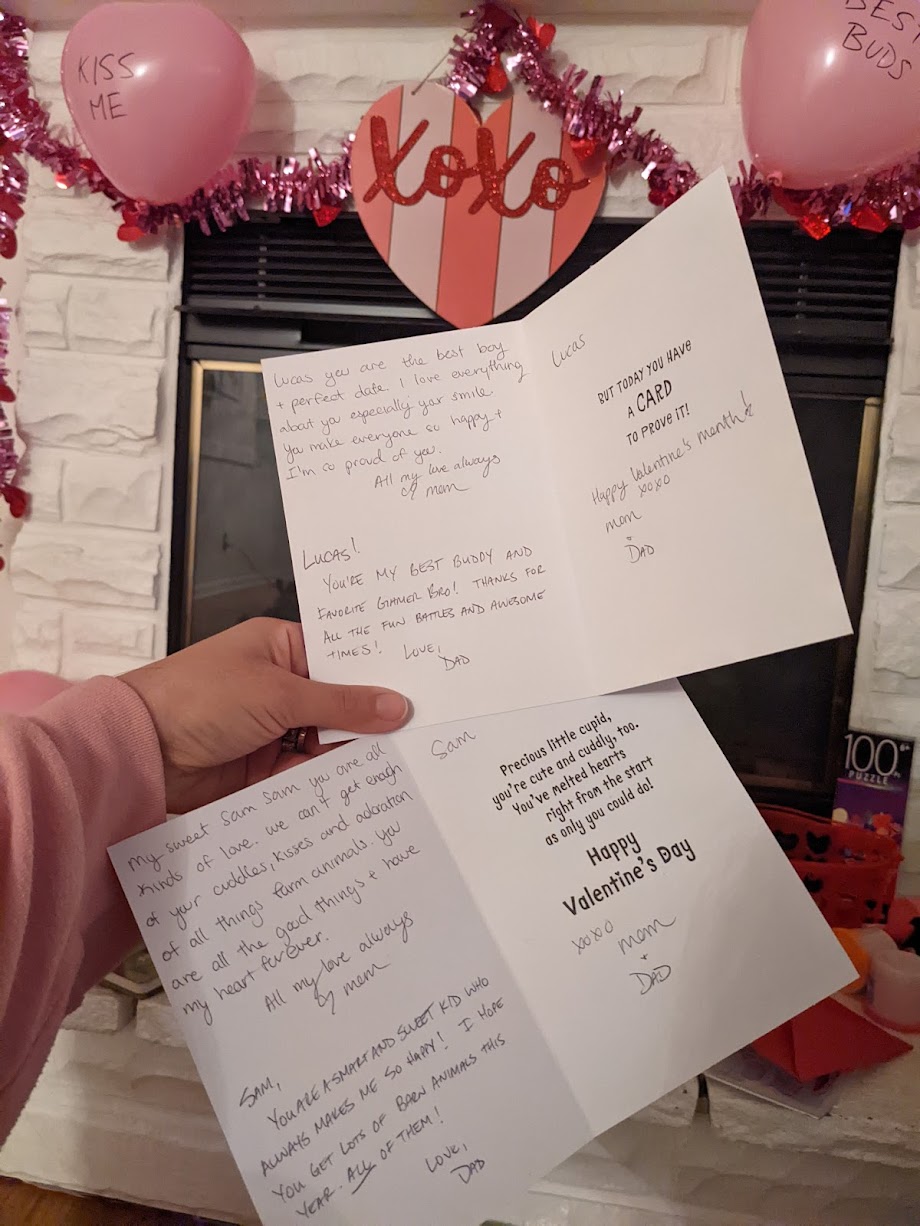 KISS
ME
BEST
BUDS
XOXO
Lucas you are the best boy
+ perfect date. I love everything
about you especially your smile.
You make everyone so happy +
I'm so proud of you.
All my love always
mom
LUCAS!
YOU'RE MY BEST BUDDY AND
FAVORITE GAMER BRO! THANKS FOR
ALL THE FUN BATTLES AND AWESOME
TIMES!
LOVE,
DAD
Lucas
BUT TODAY YOU HAVE
A CARD
TO PROVE IT!
Happy Valentine's month!
xoxo
mom
+
DAD
My sweet Sam Sam you are all
kinds of love. We can't get enough
of your cuddles, kisses and adoration
of all things farm animals. You
are all the good things + have
my heart forever.
All my love always
mom
SAM,
YOU ARE A SMART AND SWEET KID WHO
ALWAYS MAKES ME SO HAPPY! I HOPE
YOU GET LOTS OF BARN ANIMALS THIS
YEAR. ALL OF THEM!
LOVE,
DAD
Sam
Precious little cupid,
you're cute and cuddly, too.
You've melted hearts
right from the start
as only you could do!
Happy
Valentine's Day
xoxo
mom
+
DAD
100
PUZZLE